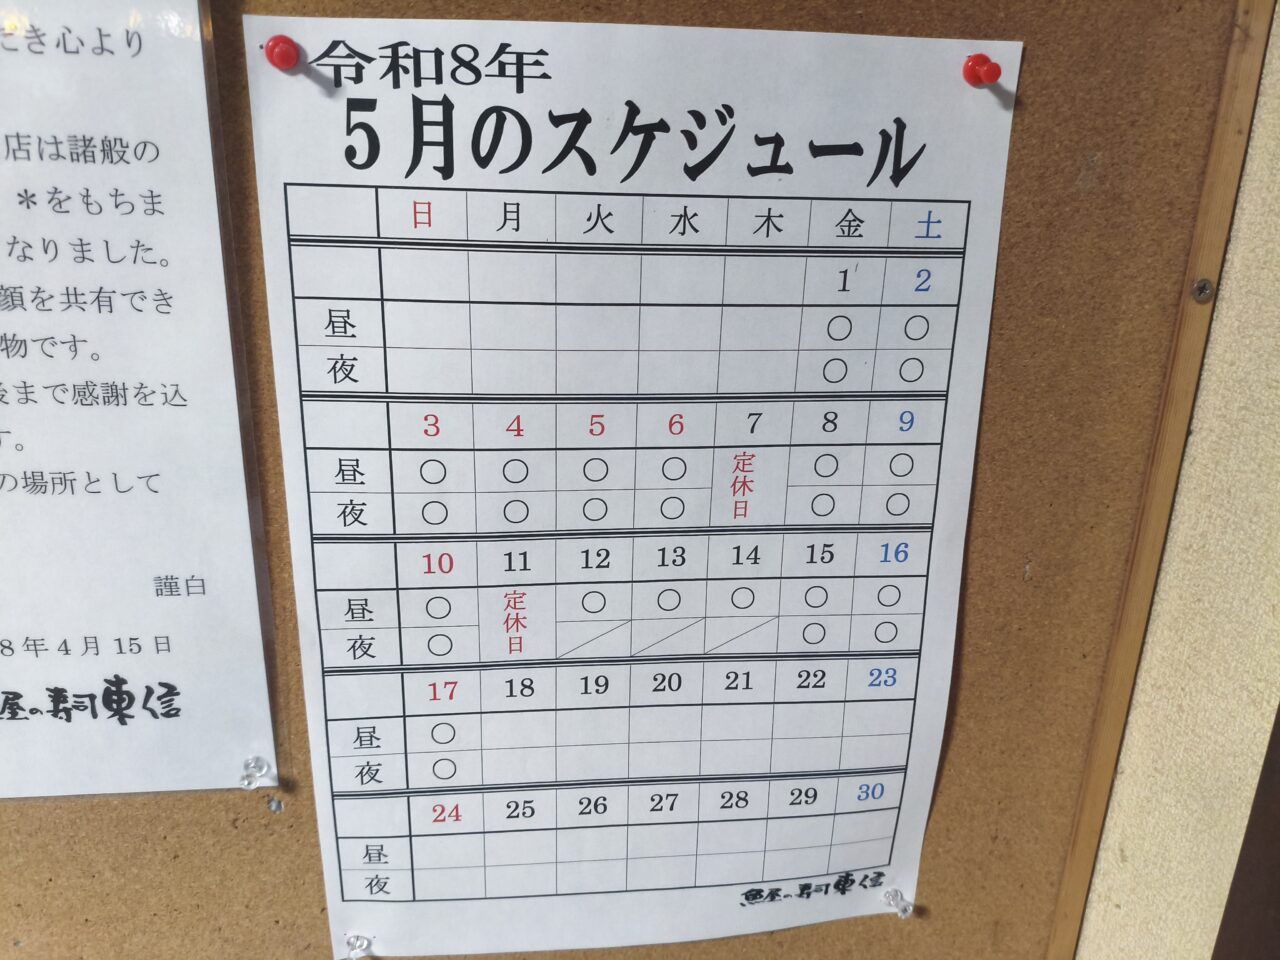 たき心より
店は諸般の
＊をもちま
なりました。
顔を共有でき
物です。
後まで感謝を込
す。
の場所として
謹白
8年4月15日
屋の寿司東信
令和8年
5月のスケジュール
日 月 火 水 木 金 土
1 2
昼 ○ ○
夜 ○ ○
3 4 5 6 7 8 9
昼 ○ ○ ○ ○ 定休日 ○ ○
夜 ○ ○ ○ ○ ○ ○
10 11 12 13 14 15 16
昼 ○ 定休日 ○ ○ ○ ○ ○
夜 ○ ／ ／ ／ ○ ○
17 18 19 20 21 22 23
昼 ○
夜 ○
24 25 26 27 28 29 30
昼
夜
魚屋の寿司東信